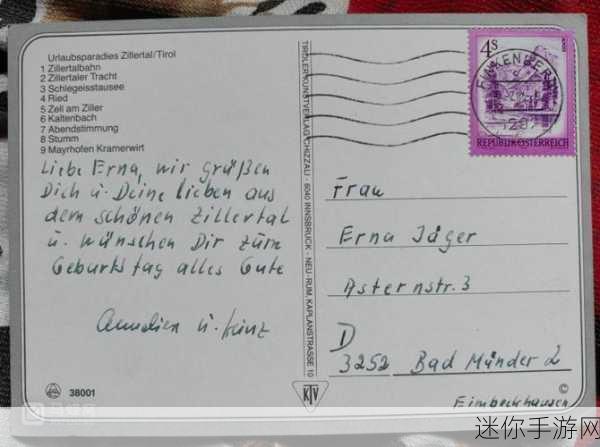 Urlaubsparadies Zillertal/Tirol
1 Zillertalbahn
2 Zillertaler Tracht
3 Schlegeisstausee
4 Ried
5 Zell am Ziller
6 Kaltenbach
7 Abendstimmung
8 Stumm
9 Mayrhofen Kramerwirt
Liebe Erna, wir grüßen
Dich u. Deine lieben aus
dem schönen Zillertal
u. wünschen Dir zum
Geburtstag alles Gute
u. Heinz
38001
TIROLER KUNSTVERLAG CHIZZALI · 6040 INNSBRUCK - NEU-RUM, KAPLANSTRASSE 10
KTV
4 S
REPUBLIK ÖSTERREICH
FINKENBERG
Frau
Erna Jäger
Asternstr. 3
D
3252 Bad Münder 2
©
Eimbeckhausen
迷你手游网